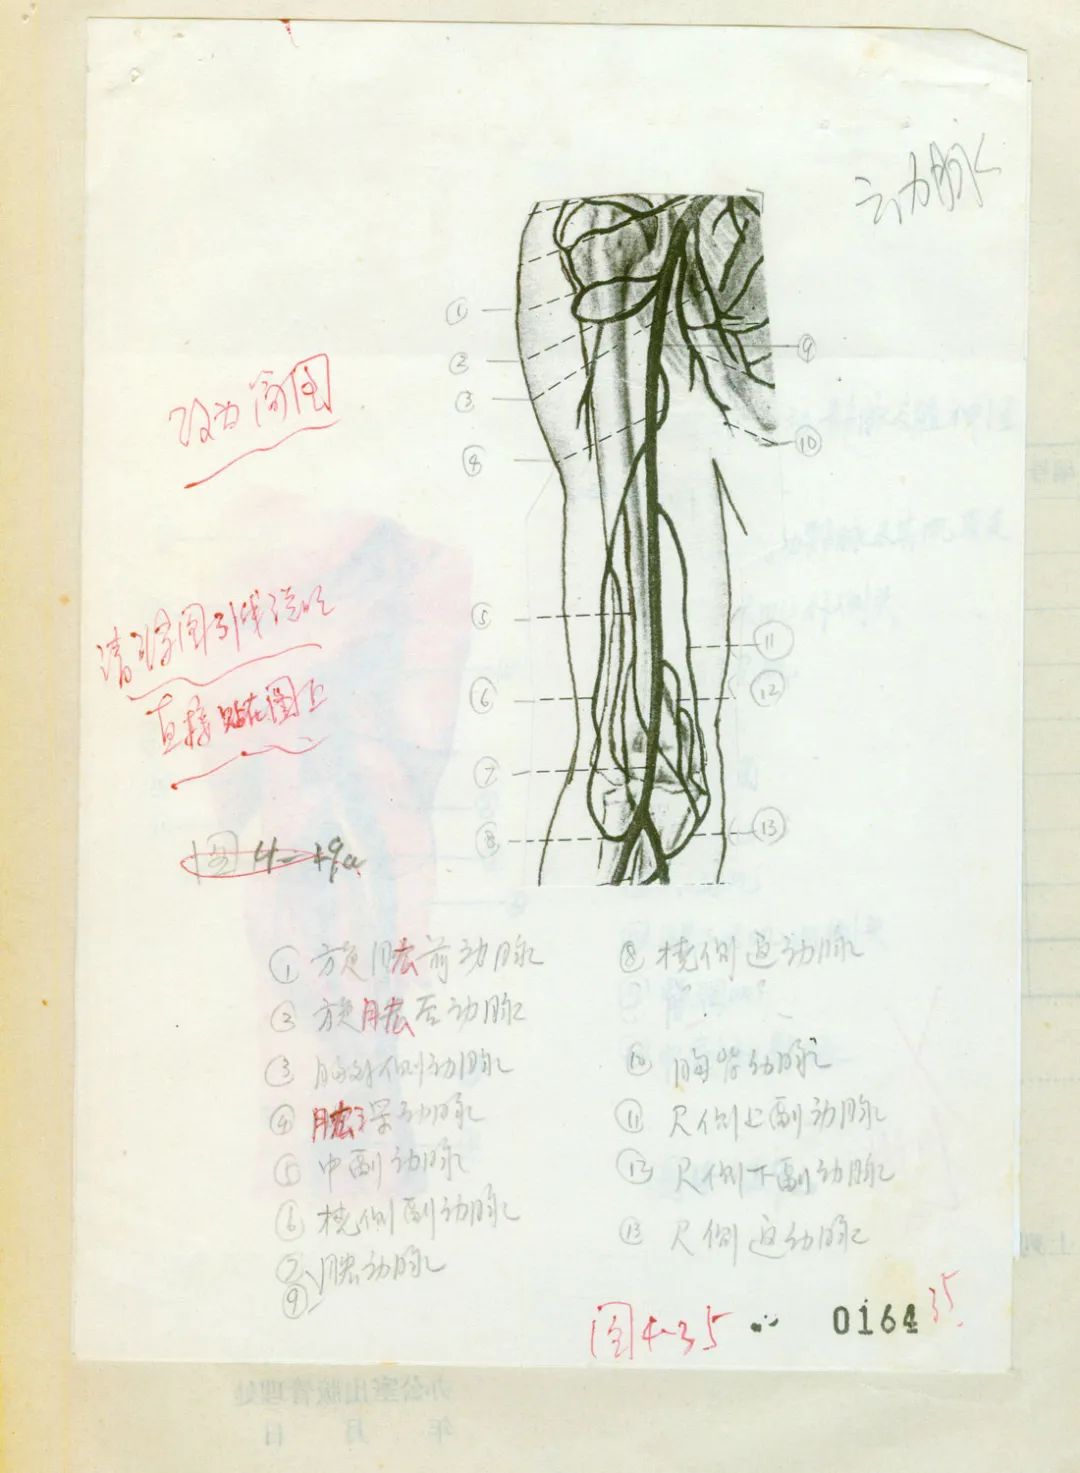 动脉
①
②
③
④
⑤
⑥
⑦
⑧
⑨
⑩
⑪
⑫
⑬
改为简图
请将图引线说明
直接贴在图上
图4-19a
① 旋肱前动脉
② 旋肱后动脉
③ 胸外侧动脉
④ 肱深动脉
⑤ 中副动脉
⑥ 桡侧副动脉
⑦
⑨ 肱动脉
⑧ 桡侧返动脉
⑩ 胸背动脉
⑪ 尺侧上副动脉
⑫ 尺侧下副动脉
⑬ 尺侧返动脉
图4-35
0164
35
办公室出版管理处
年 月 日